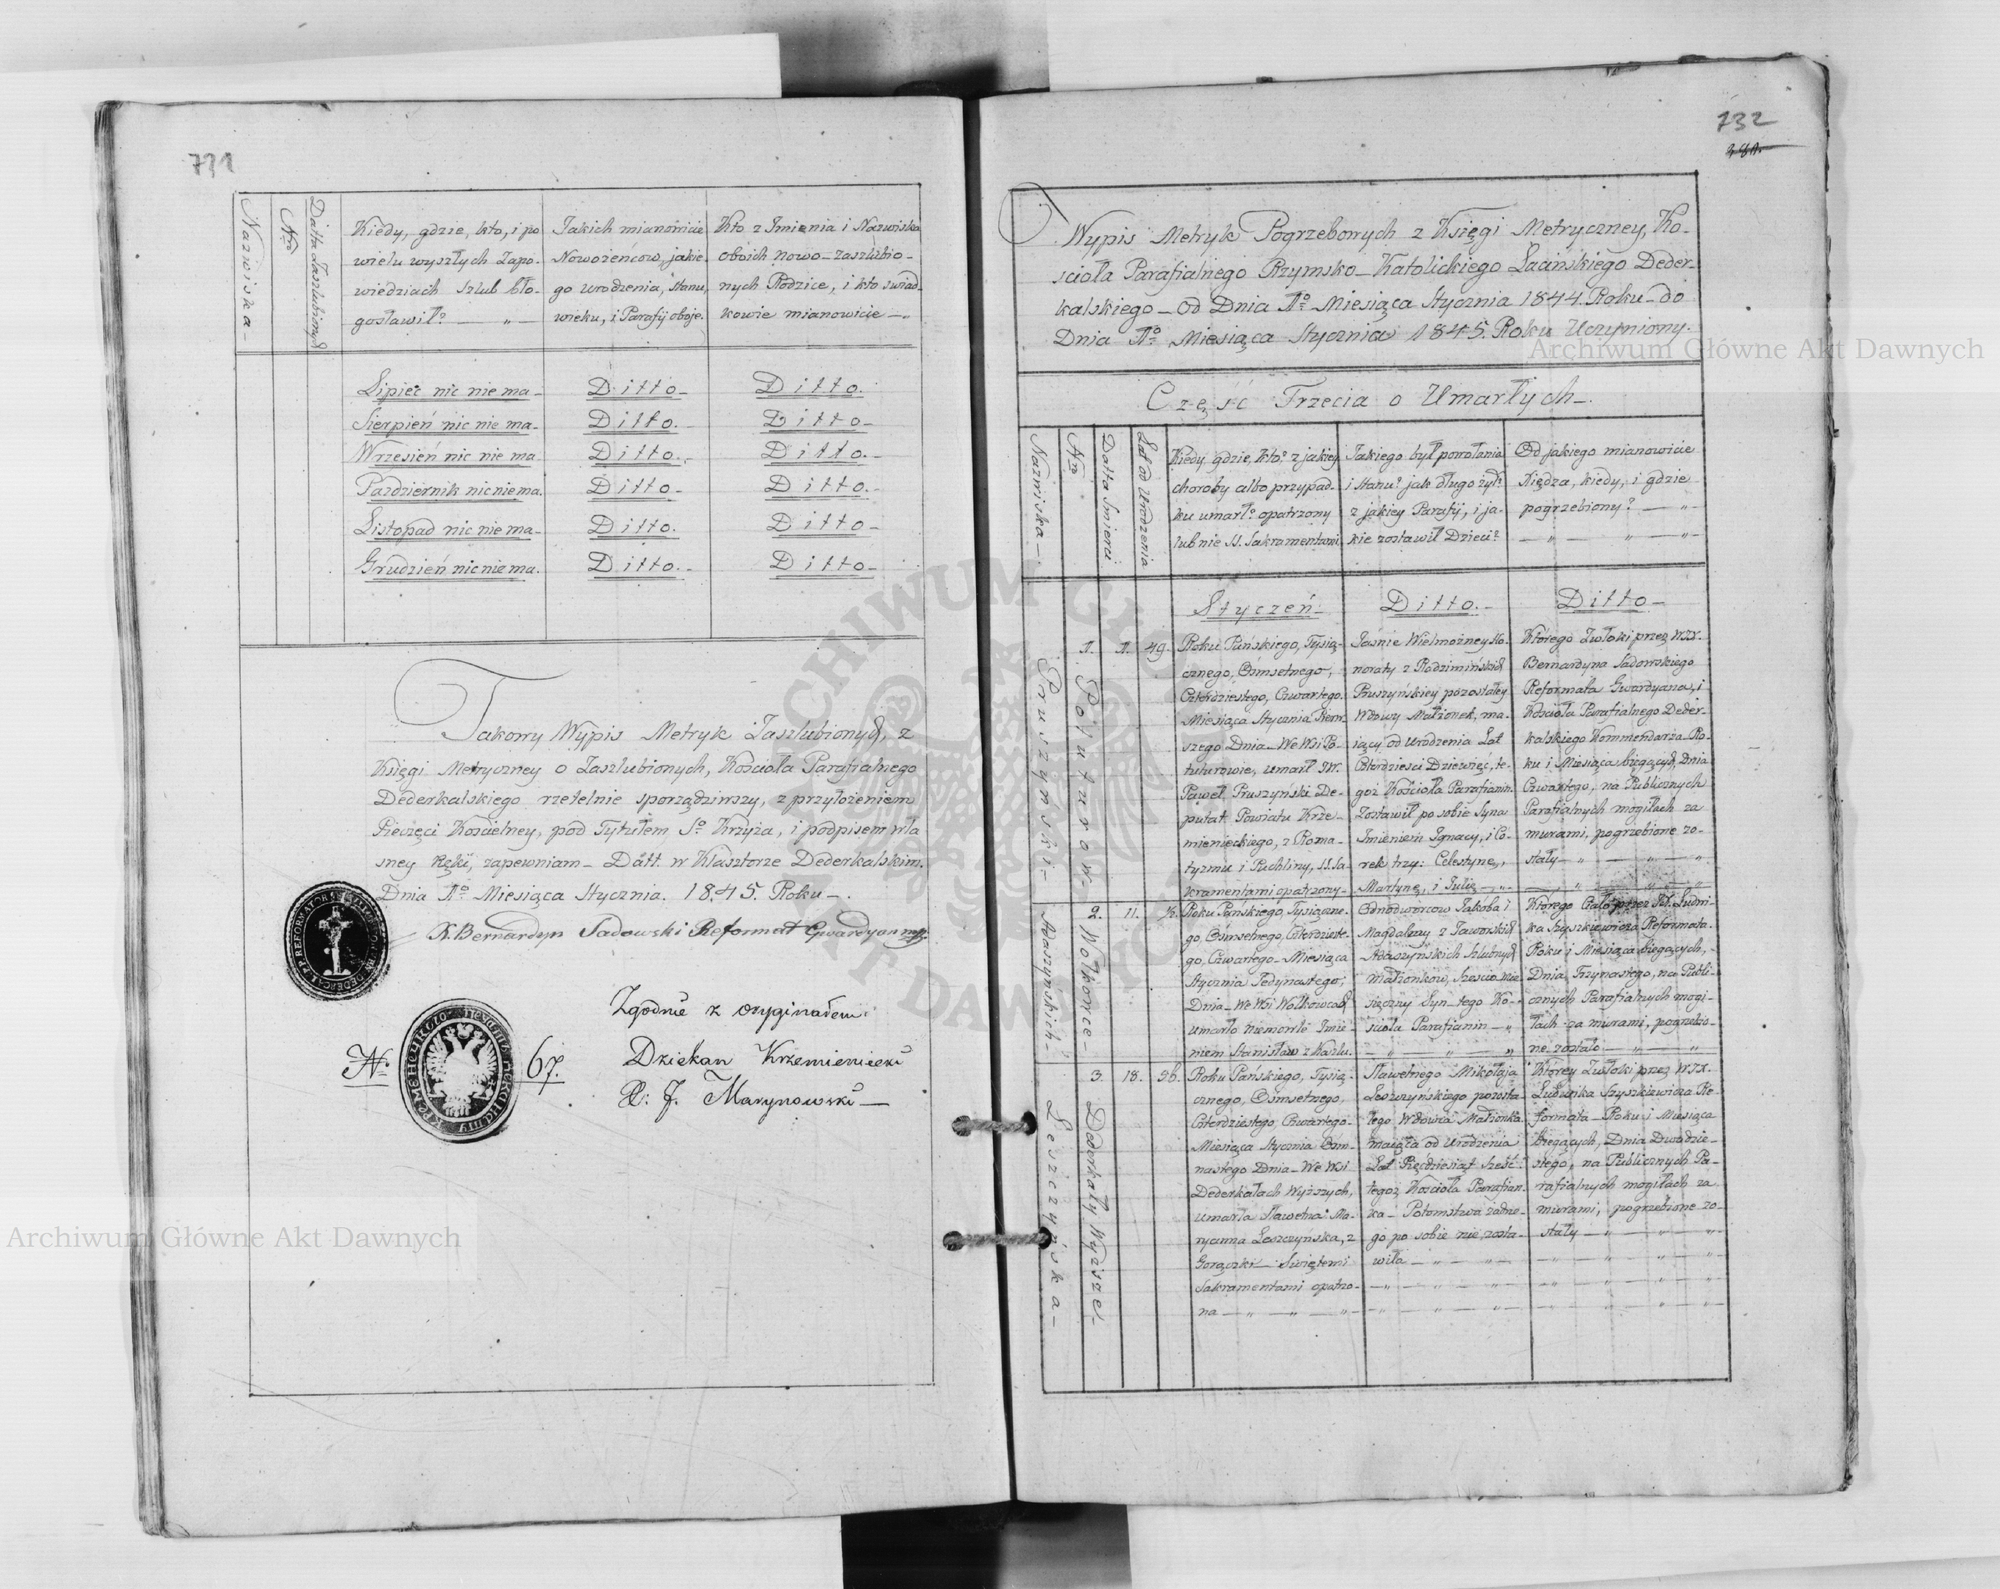 731
Nazwiska -
Nro
Datta Zaszlubionych
Kiedy, gdzie, kto, i po
wielu wyszłych Zapo-
wiedziach Szlub bło-
gosławił? — „ —
Jakich mianowicie
Nowożeńców, jakie-
go urodzenia, stanu,
wieku, i Parafij oboje.
Kto z Imienia i Nazwiska
oboich nowo-zaszlubio-
nych Rodzice, i kto świad-
kowie mianowicie —
Lipiec nic nie ma - Ditto - Ditto.
Sierpień nic nie ma - Ditto. - Ditto -
Wrzesień nic nie ma Ditto. - Ditto. -
Pazdziernik nic nie ma. Ditto - Ditto.
Listopad nic nie ma - Ditto. Ditto -
Grudzień nic nie ma. Ditto. - Ditto -
Takowy Wypis Metryk Zaszlubionych, z
Księgi Metryczney o Zaszlubionych, Kościoła Parafialnego
Dederkalskiego rzetelnie sporządziwszy, z przyłożeniem
Pieczęci Kościelney, pod Tytułem So Krzyża, i podpisem wła
sney Ręki, zapewniam - Datt. w Klasztorze Dederkalskim.
Dnia 1o Miesiąca Stycznia. 1845. Roku -
X. Bernardyn Sadowski Reformat Gwardyan
Zgodnie z oryginałem
No 67. Dziekan Krzemieniecki
X: J. Marynowski —
732
Wypis Metryk Pogrzebowych z Księgi Metryczney, Ko-
ścioła Parafialnego Rzymsko-Katolickiego Łacińskiego Deder-
kalskiego - od Dnia 1o Miesiąca Stycznia 1844. Roku - do
Dnia 1o Miesiąca Stycznia 1845. Roku Uczyniony.
Część Trzecia o Umarłych -
Nazwiska -
Nro
Datta Smierci
Lat od Urodzenia
Kiedy, gdzie, kto? z jakiey
choroby albo przypad-
ku umarł? opatrzony
lub nie SS. Sakramentami.
Jakiego był powołania
i Stanu? jak długo żył?
z jakiey Parafij, i ja-
kie zostawił Dzieci?
Od jakiego mianowicie
Xiędza, kiedy, i gdzie
pogrzebiony? — „ —
Styczeń - Ditto. - Ditto -
Pruszyński -
1. Poluturow -
1. 49.
Roku Pańskiego, Tysią-
cznego, Ośmsetnego,
Czterdziestego, Czwartego.
Miesiąca Stycznia Pierw-
szego Dnia - We Wsi Po-
tuturowie, umarł JW.
Paweł Pruszyński De-
putat Powiatu Krze-
mienieckiego, z Roma-
tyzmu i Puchliny, SS. Sa-
kramentami opatrzony -
Jaśnie Wielmożney Ho-
noraty z Radzimińskich
Pruszyńskiey pozostałey
Wdowy Małżonek, ma-
iący od Urodzenia Lat
Czterdzieści Dziewięć, te-
goż Kościoła Parafianin.
Zostawił po sobie Syna
Imieniem Ignacy, i Co-
rek trzy: Celestynę,
Martynę, i Julię -
Którego Zwłoki przez WJX.
Bernardyna Sadowskiego
Reformata Gwardyana, i
Kościoła Parafialnego Deder-
kalskiego Kommendarza Ro-
ku i Miesiąca bieżących, Dnia
Czwartego, na Publicznych
Parafialnych mogiłach za
murami, pogrzebione zo-
stały -
Adaszyńskich -
2. Wołkowce -
11. ½.
Roku Pańskiego, Tysiączne-
go, Ośmsetnego, Czterdzieste-
go, Czwartego - Miesiąca
Stycznia Jedynastego,
Dnia - We Wsi Wołkowcach
umarło niemowle Imie-
niem Stanisław z Kaszlu.
Odnodworcow Jakoba i
Magdaleny z Jaworskich
Adaszyńskich Szlubnych
Małżonków, Sześcio Mie
sięczny Syn - tego Ko-
ścioła Parafianin -
Którego Ciało przez JX. Ludwi-
ka Szyszkiewicza Reformata.
Roku i Miesiąca bieżących,
Dnia Trzynastego, na Publi-
cznych Parafialnych mogi-
łach za murami, pogrzebio-
ne zostało -
Leszczyńska -
3. Dederkały Wyższe -
18. 56.
Roku Pańskiego, Tysią-
cznego, Ośmsetnego,
Czterdziestego, Czwartego -
Miesiąca Stycznia Ośm-
nastego Dnia - We Wsi
Dederkałach Wyższych,
umarła Sławetna Ma-
ryanna Leszczyńska, z
Gorączki - Świętemi
Sakramentami opatrzo-
na -
Sławetnego Mikołaja
Leszczyńskiego pozosta-
łego Wdowca Małżonka
maiąca od Urodzenia
Lat Pięćdziesiąt Sześć.
tegoż Kościoła Parafian-
ka - Potomstwa żadne-
go po sobie nie zosta-
wiła -
Którey Zwłoki przez WJX.
Ludwika Szyszkiewicza Re
formata - Roku i Miesiąca
bieżących, Dnia Dwudzie-
stego, na Publicznych Pa-
rafialnych mogiłach za
murami, pogrzebione zo-
stały -
Archiwum Główne Akt Dawnych
Archiwum Główne Akt Dawnych
ARCHIWUM GŁÓWNE AKT DAWNYCH